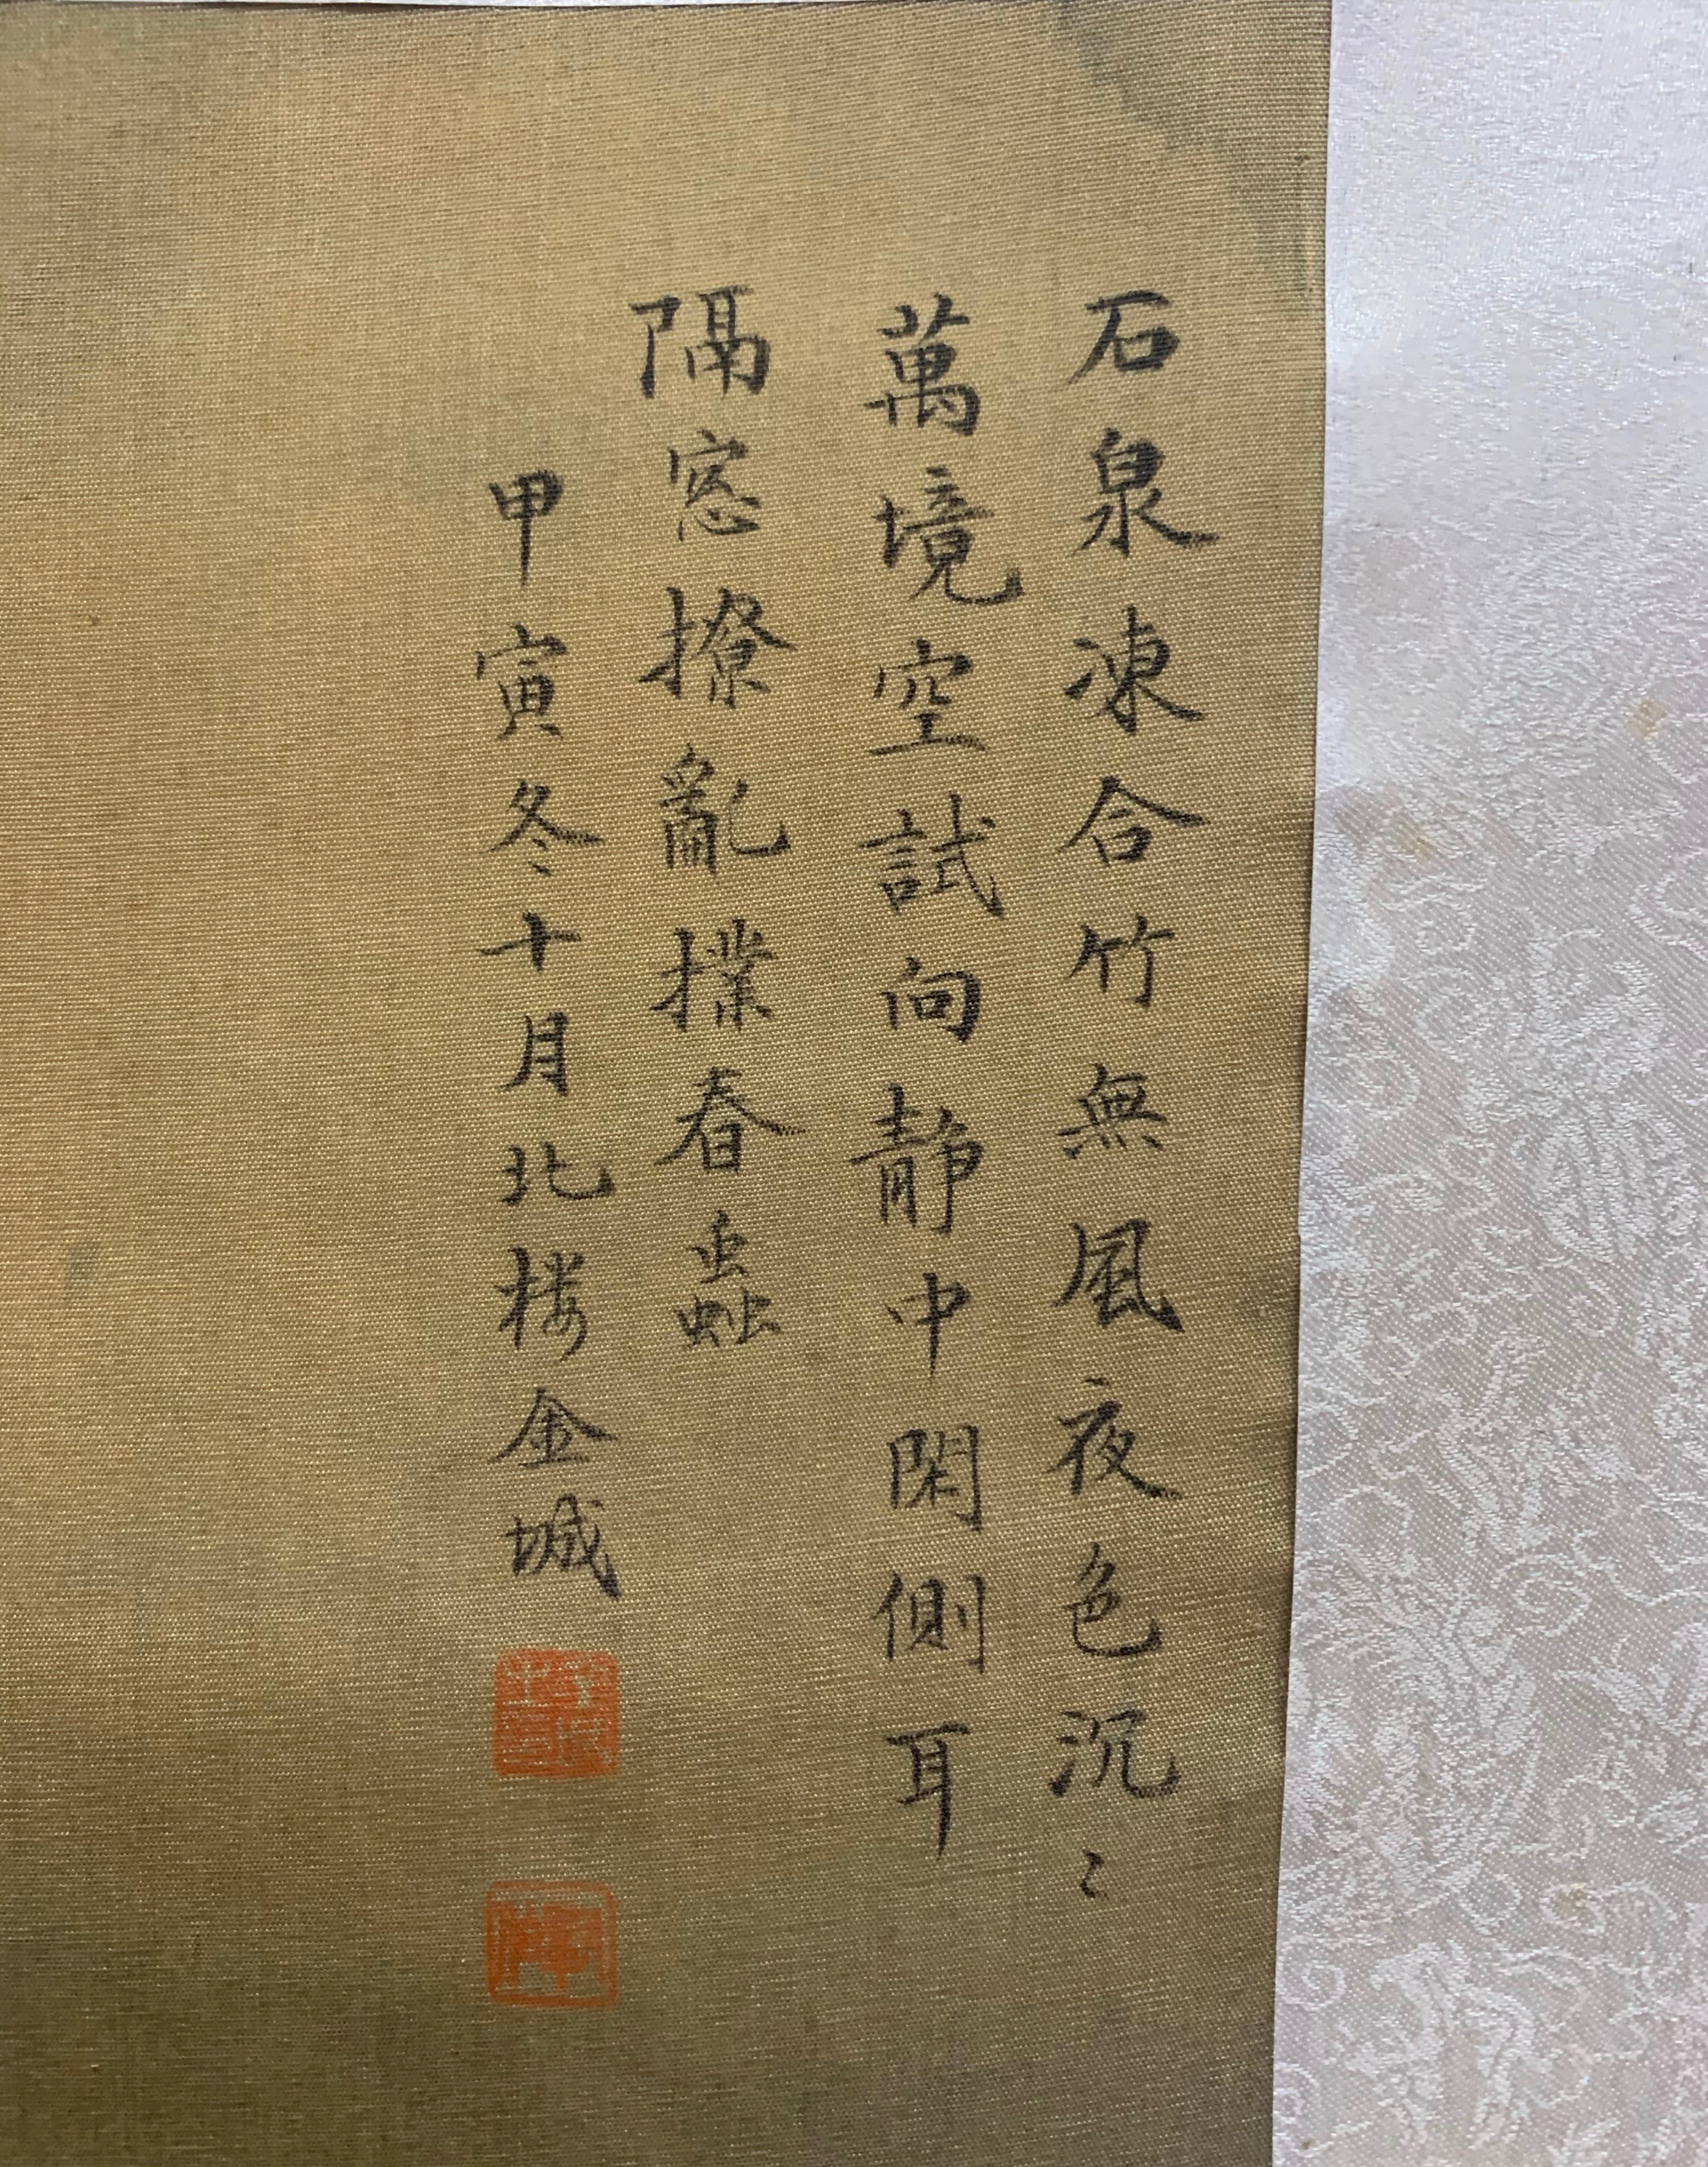 石泉凍合竹無風夜色沉〻
萬境空試向静中閑側耳
隔窓撩亂撲春蟲
甲寅冬十月北楼金城